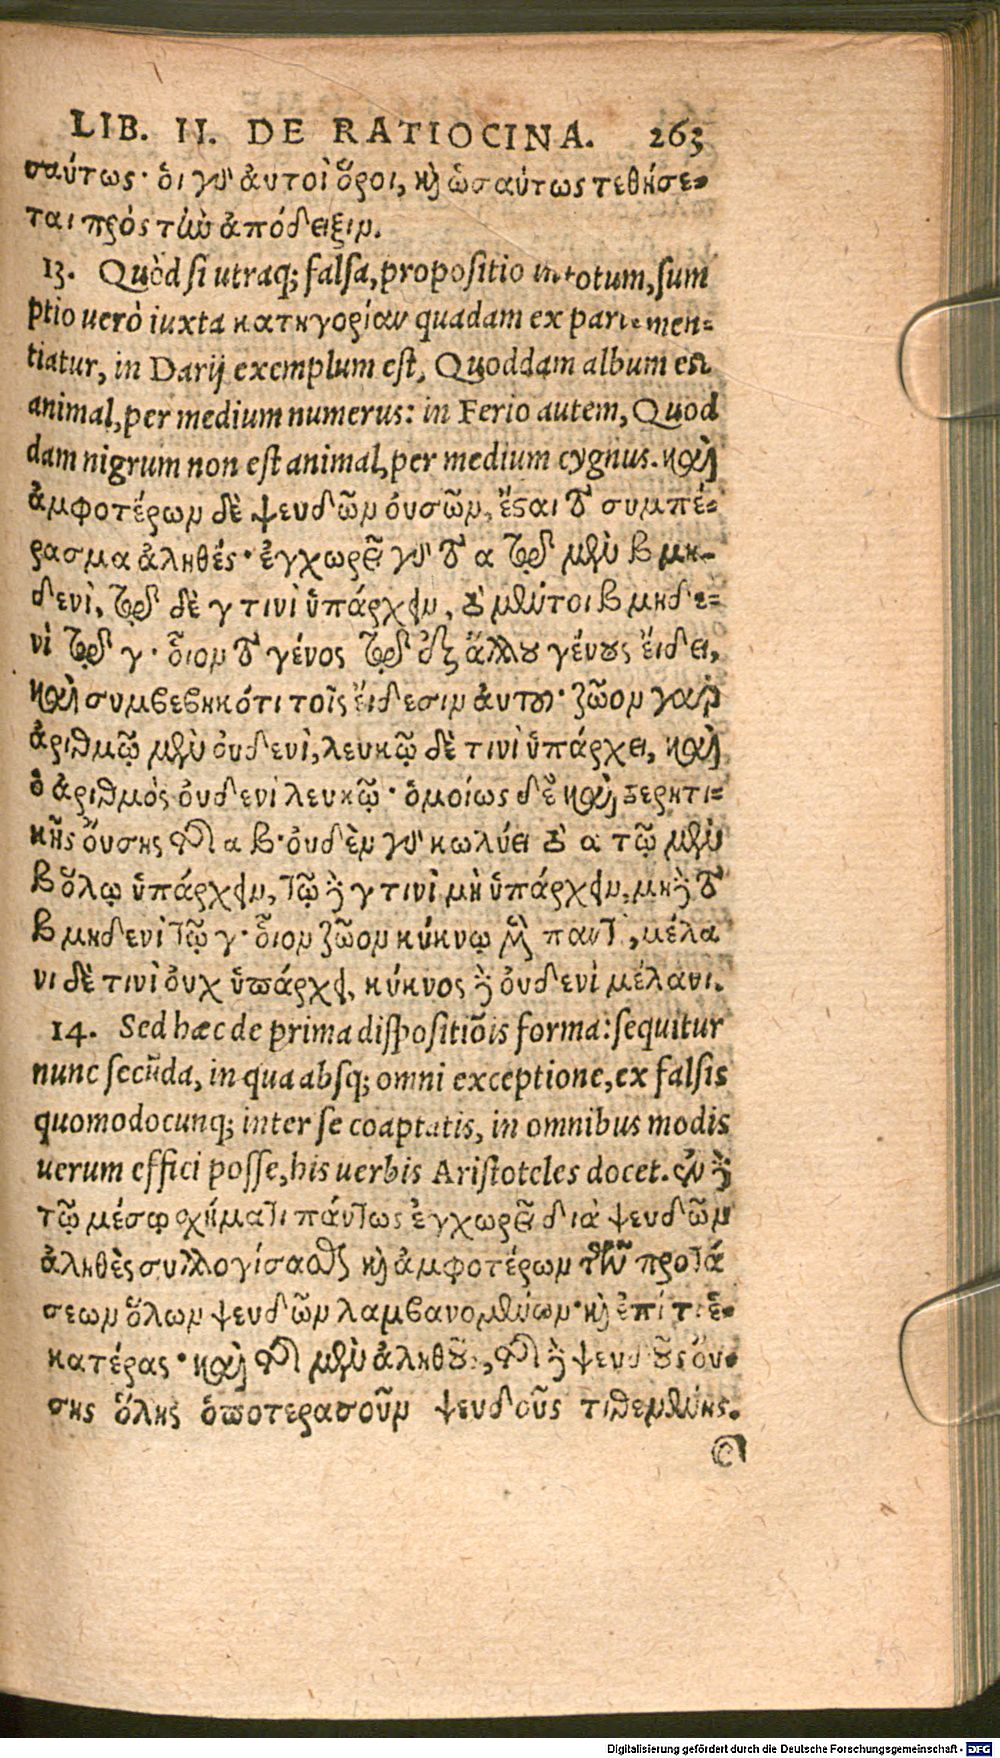 LIB. II. DE RATIOCINA. 263
σαύτως· ὁι γὰρ ἀυτοὶ ὅροι, κὴ ὡσαύτως τεθήσε-
ται πρός τὼ ἀπόδειξιν.
13. Quòd si utraq; falsa, propositio in totum, sum
ptio uerò iuxta κατηγορίαν quadam ex parte men-
tiatur, in Darij exemplum est, Quoddam album est
animal, per medium numerus: in Ferio autem, Quod
dam nigrum non est animal, per medium cygnus. καὶ
ἀμφοτέρων δὲ ψευδῶν ὀυσῶν, ἔσαι τὸ συμπέ-
ρασμα ἀληθές· ἐγχωρεῖ γὰρ τὸ α τῷ μὲν β μη-
δενὶ, τῷ δὲ γ τινὶ ὑπάρχειν, τὸ μέντοι β μηδε-
νὶ τῷ γ· οἷον τὸ γένος τῷ ἐξ ἄλλου γένους ἔιδει,
καὶ συμβεβηκότι τοῖς ἔιδεσιν ἀυτοῦ· ζῶον γαρ
ἀριθμῷ μὲν ὀυδενὶ, λευκῷ δὲ τινὶ ὑπάρχει, καὶ
ὁ ἀριθμὸς ὀυδενὶ λευκῷ· ὁμοίως δὲ καὶ ξερητι-
κῆς ὄυσης τῆς α β· ὀυδὲν γὰρ κωλύει τὸ α τῷ μὲν
β ὅλῳ ὑπάρχειν, τῷ δὲ γ τινὶ μὴ ὑπάρχειν, μηδὲ τὸ
β μηδενὶ τῷ γ· οἷον ζῶον κύκνῳ μὲν παντὶ, μέλα
νι δὲ τινὶ ὀυχ ὑπάρχει, κύκνος δὲ ὀυδενὶ μέλανι.
14. Sed hæc de prima dispositiõis forma: sequitur
nunc secũda, in qua absq; omni exceptione, ex falsis
quomodocunq; inter se coaptatis, in omnibus modis
uerum effici posse, his uerbis Aristoteles docet. ἐν δὲ
τῷ μέσῳ σχήματι πάντως ἐγχωρεῖ διὰ ψευδῶν
ἀληθὲς συλλογίσασθαι κὴ ἀμφοτέρων τῶν προτά
σεων ὅλων ψευδῶν λαμβανομένων· κὴ ἐπί τι ἑ-
κατέρας· καὶ τῆς μὲν ἀληθοῦς, τῆς δὲ ψευδοῦς ὄυ-
σης ὅλης ὁποτερασοῦν ψευδοῦς τιθεμένης.